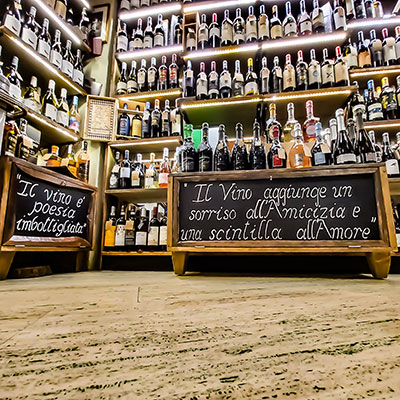 "Il vino è
poesia
imbottigliata"
"Il Vino aggiunge un
sorriso all'Amicizia e
una scintilla all'Amore"